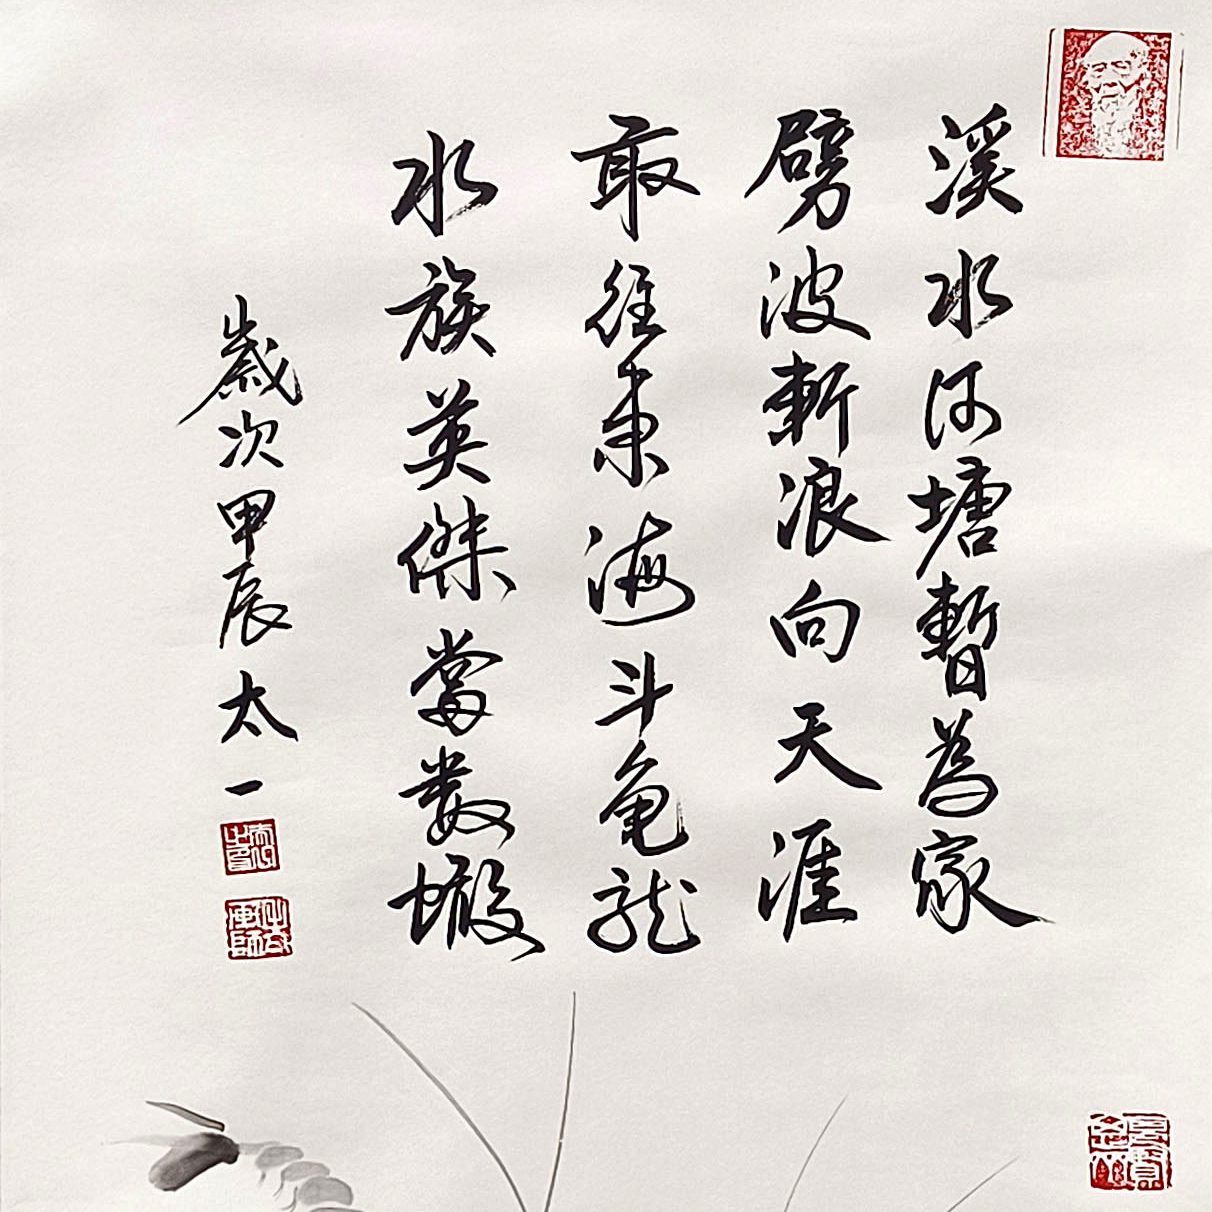 溪水河塘暫為家
劈波斬浪向天涯
敢往東海斗龟龍
水族英傑當數蝦
歲次甲辰太一